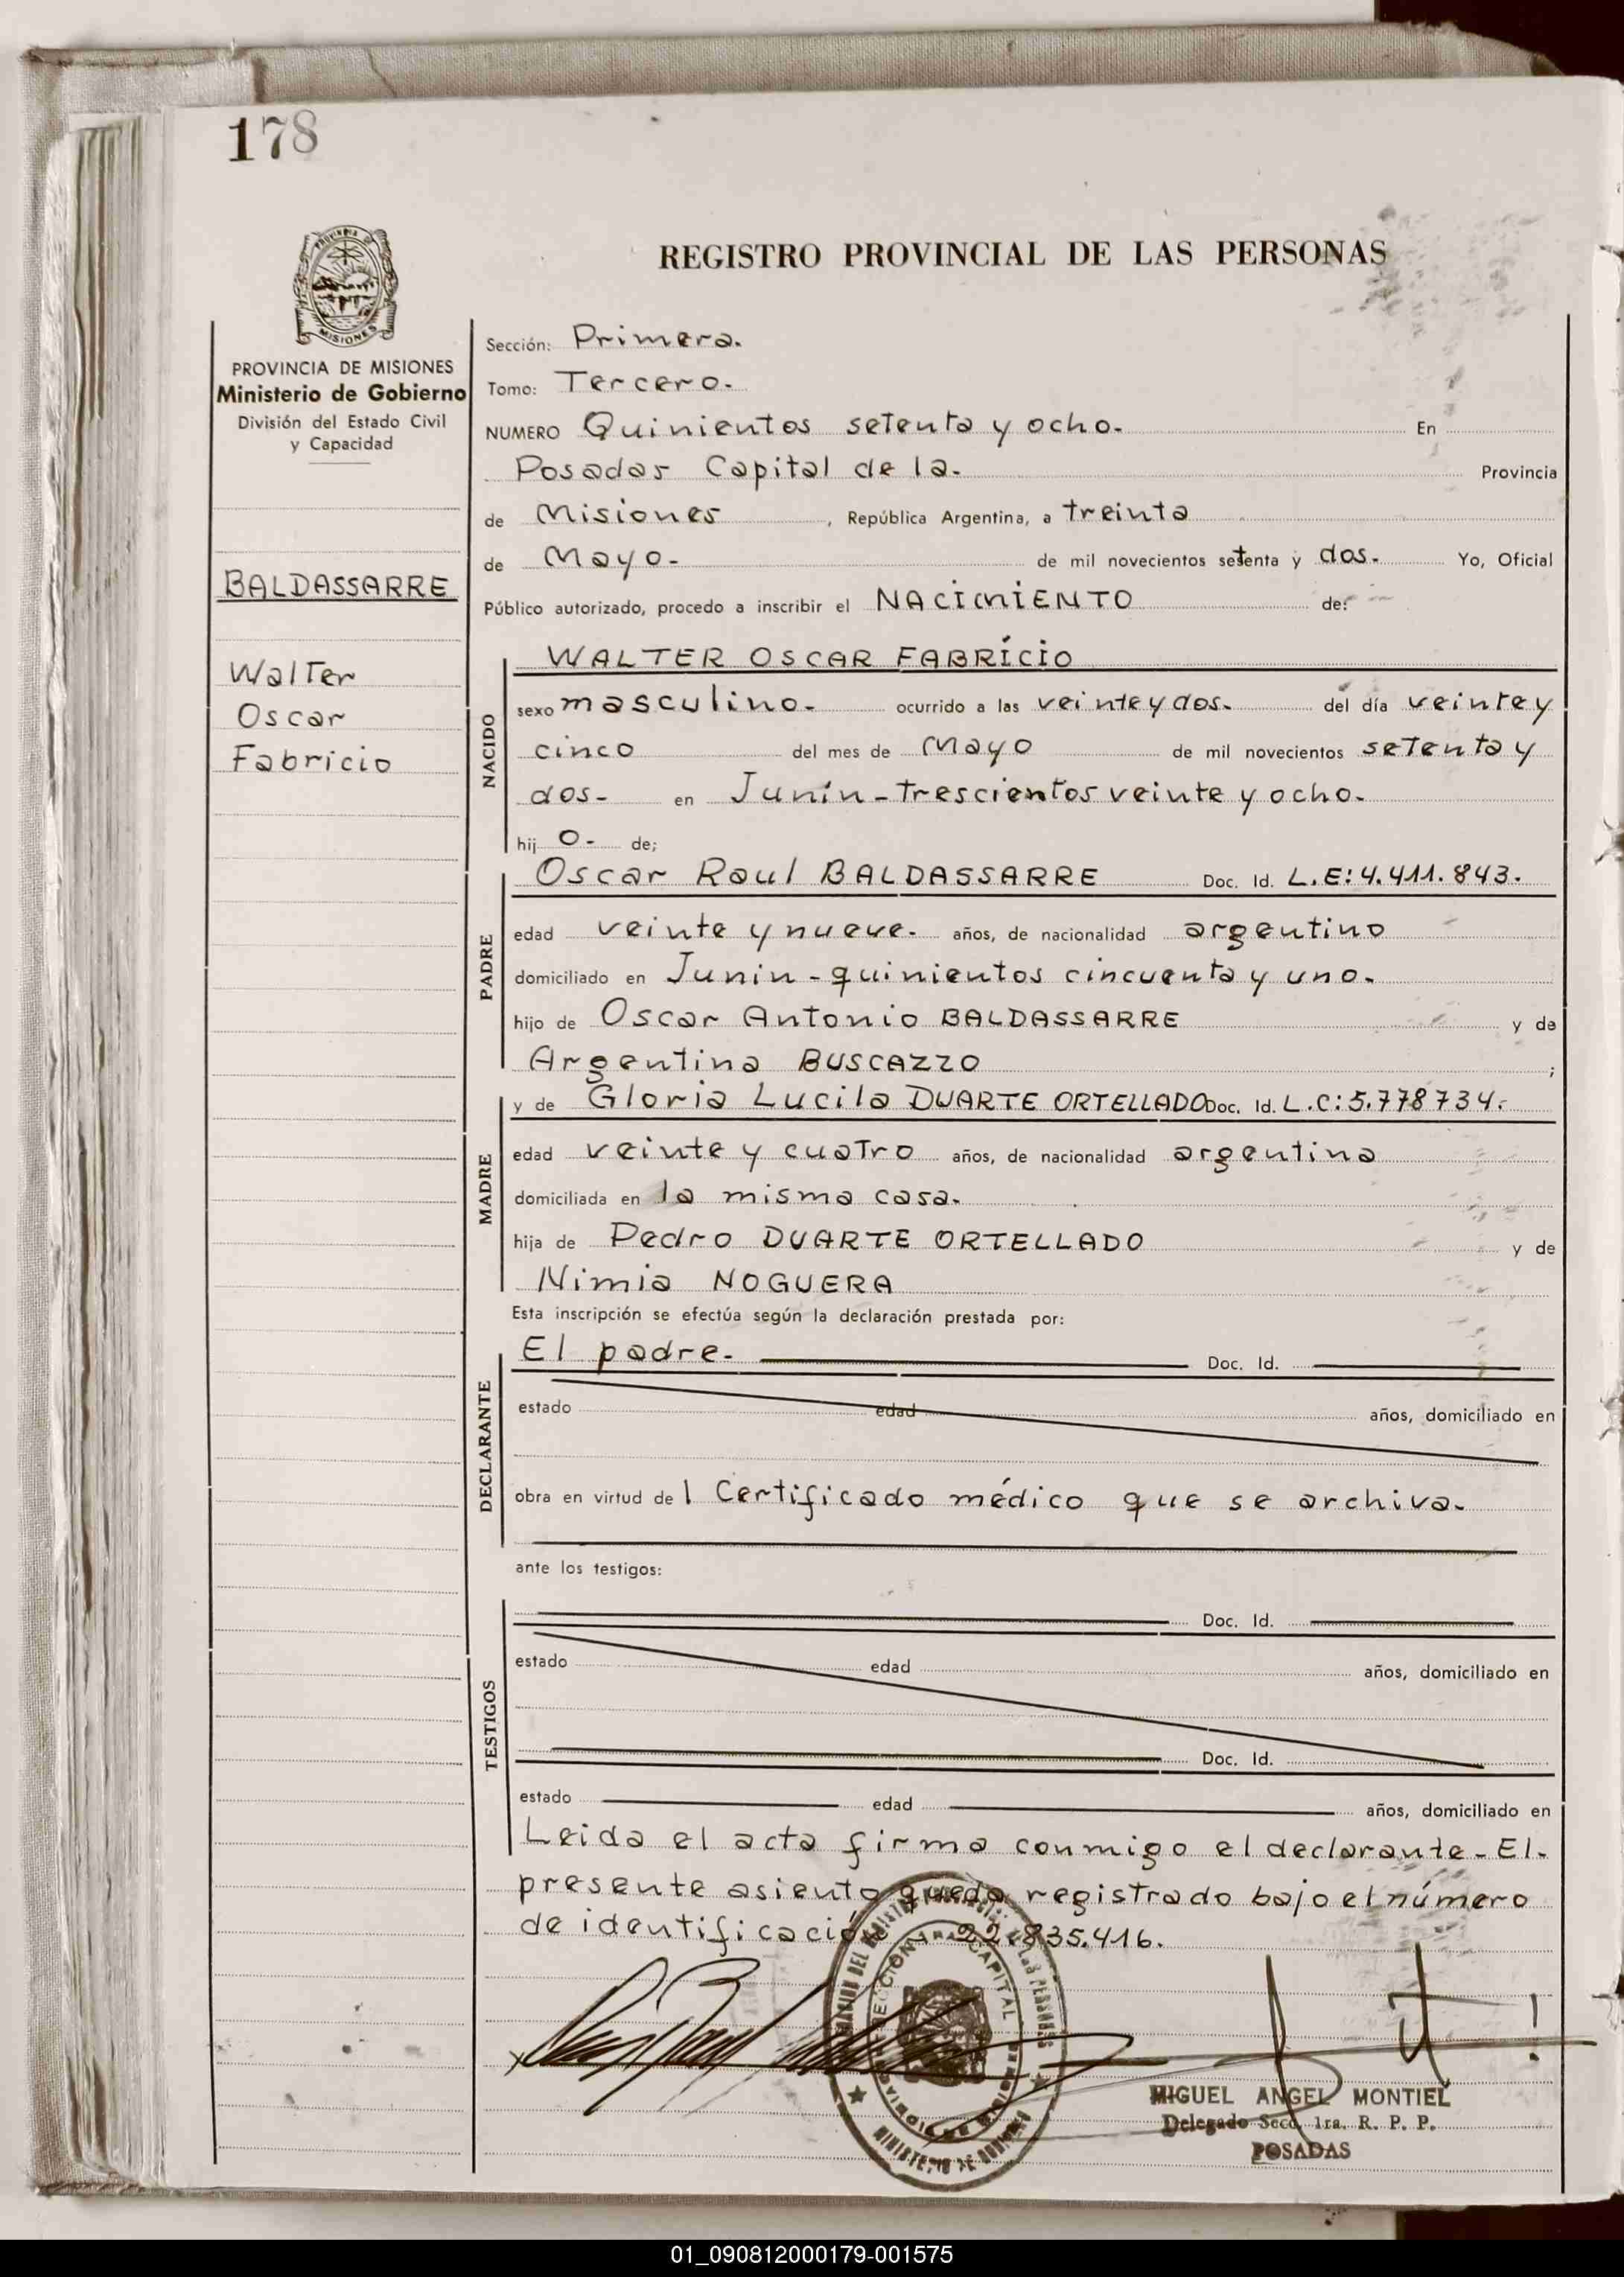 178
REGISTRO PROVINCIAL DE LAS PERSONAS
PROVINCIA DE MISIONES
Ministerio de Gobierno
División del Estado Civil
y Capacidad
BALDASSARRE
Walter
Oscar
Fabricio
Sección: Primera.
Tomo: Tercero.
NUMERO Quinientos setenta y ocho. En
Posadas Capital de la. Provincia
de Misiones, República Argentina, a treinta
de Mayo. de mil novecientos setenta y dos. Yo, Oficial
Público autorizado, procedo a inscribir el NACIMIENTO de:
NACIDO
WALTER OSCAR FABRÍCIO
sexo masculino. ocurrido a las veinte y dos. del día veinte y
cinco del mes de Mayo de mil novecientos setenta y
dos- en Junín - trescientos veinte y ocho.
hij o. de;
PADRE
Oscar Raul BALDASSARRE Doc. Id. L.E: 4.411.843.
edad veinte y nueve. años, de nacionalidad argentino
domiciliado en Junin - quinientos cincuenta y uno.
hijo de Oscar Antonio BALDASSARRE y de
Argentina BUSCAZZO ;
MADRE
y de Gloria Lucila DUARTE ORTELLADO Doc. Id. L.C: 5.778734.
edad veinte y cuatro años, de nacionalidad argentina
domiciliada en la misma casa.
hija de Pedro DUARTE ORTELLADO y de
Nimia NOGUERA
Esta inscripción se efectúa según la declaración prestada por:
DECLARANTE
El padre. Doc. Id.
estado edad años, domiciliado en
obra en virtud de l Certificado médico que se archiva.
ante los testigos:
TESTIGOS
Doc. Id.
estado edad años, domiciliado en
Doc. Id.
estado edad años, domiciliado en
Leida el acta firma conmigo el declarante - El-
presente asiento queda registrado bajo el número
de identificación 22.835.416.
MIGUEL ANGEL MONTIEL
Delegado Secc. 1ra. R. P. P.
POSADAS
01_090812000179-001575